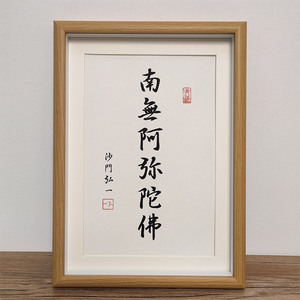 南無阿弥陀佛
沙門弘一